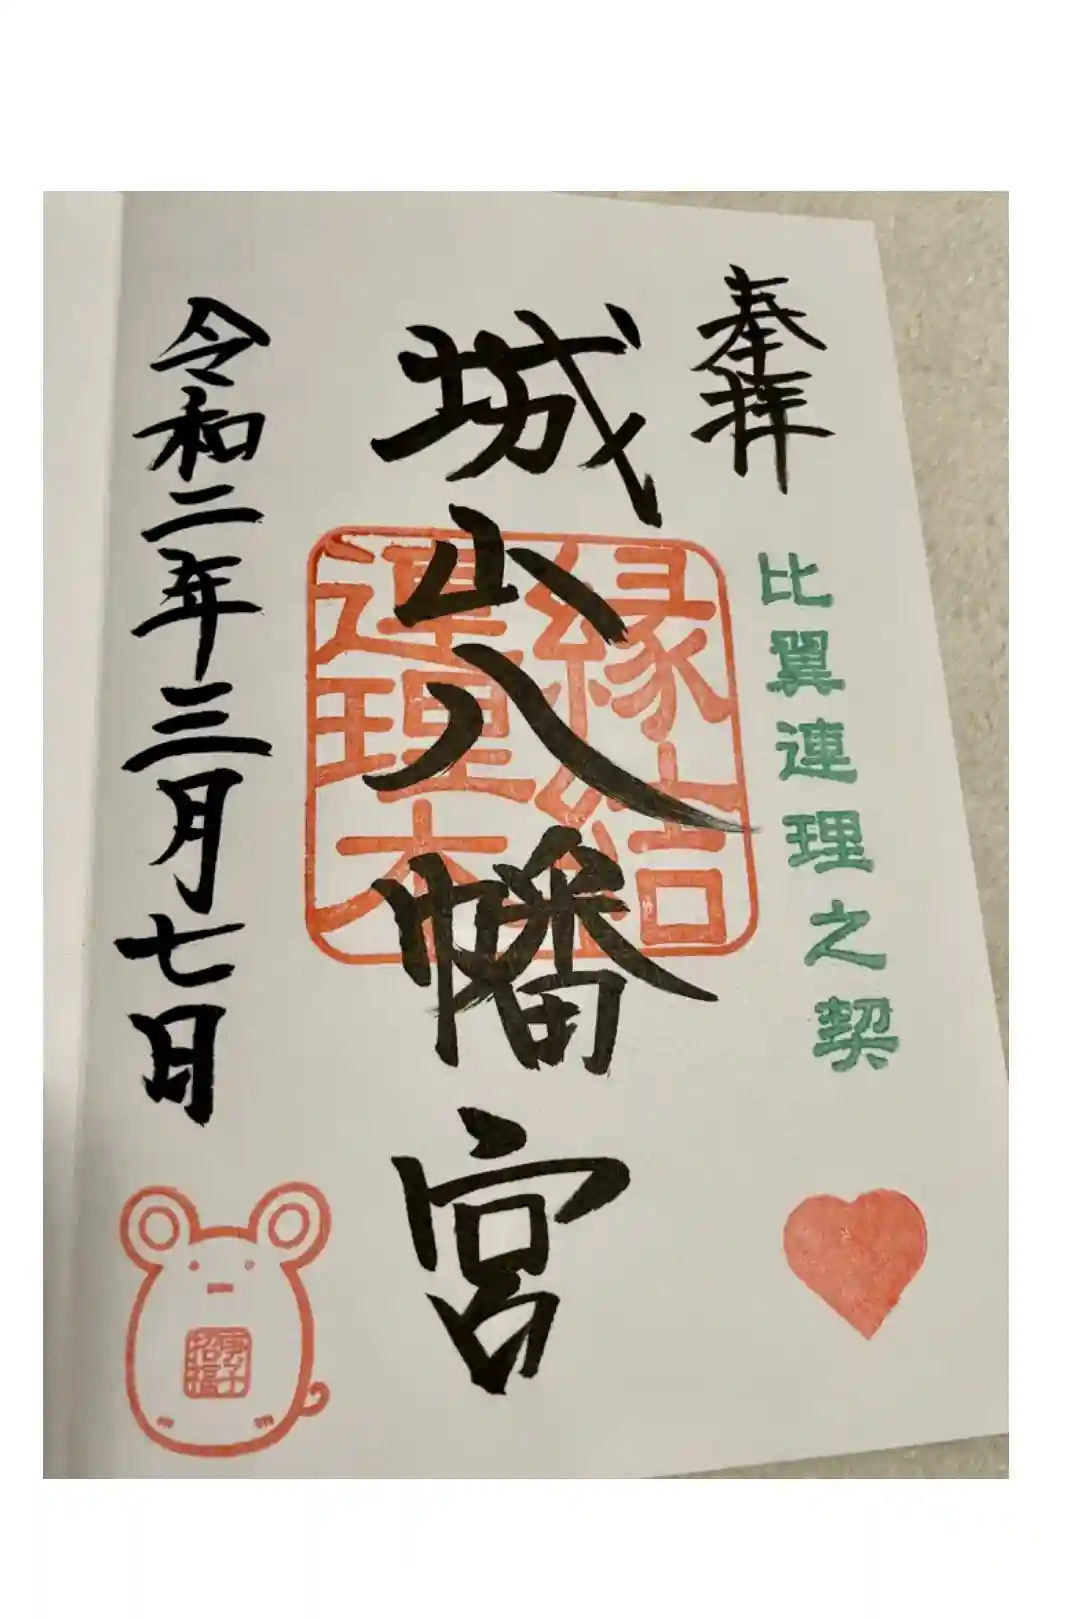 奉拝
比翼連理之契
城山八幡宮
縁結
連理木
令和二年三月七日
庚子
招福